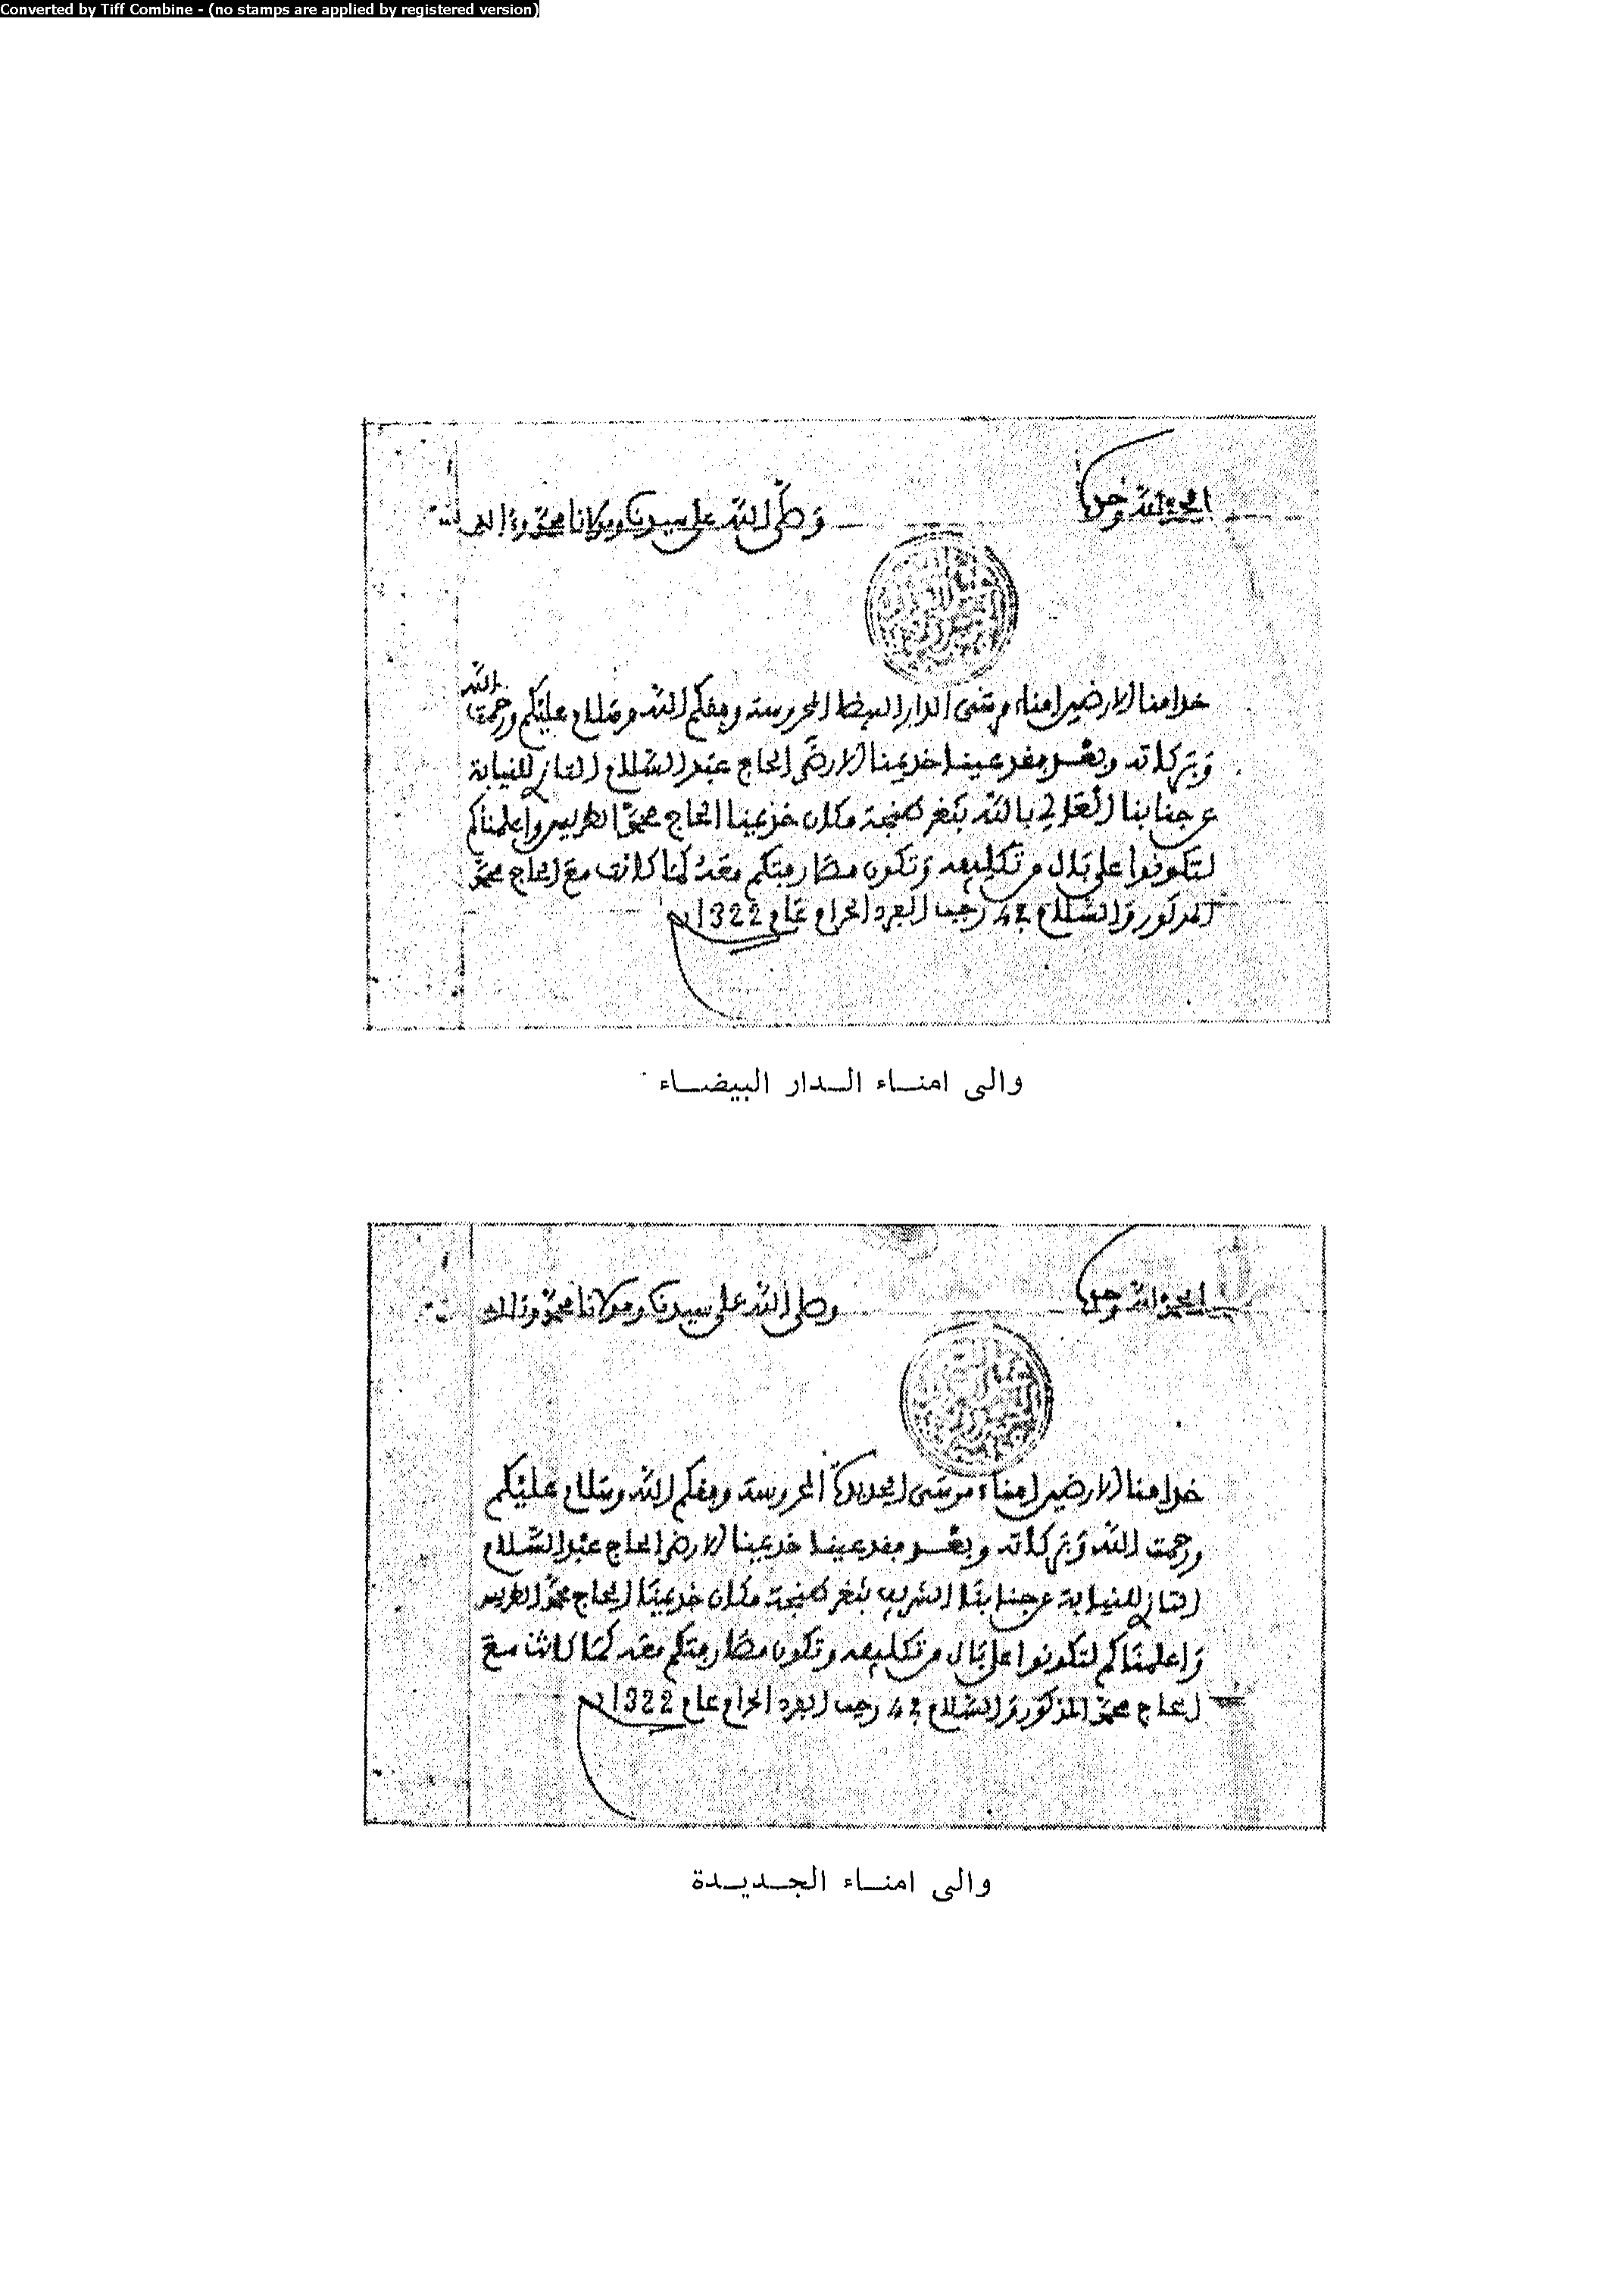 Converted by Tiff Combine - (no stamps are applied by registered version)
الحمد لله وحده
وصلى الله على سيدنا ومولانا محمد وءاله
خدامنا الارضين امناء مرسى الدار البيضا المحروسة وفقكم الله وسلام عليكم ورحمت الله
وبركاته وبعد فقد عينا خديمنا الارضى الحاج عبد السلام التازي للنيابة
عن جنابنا العالي بالله بثغر طنجة مكان خديمنا الحاج محمد الطريس واعلمناكم
لتكونوا على بال من تكليفه وتكون مصارفتكم معه كما كانت مع الحاج محمد
المذكور والسلام في 24 رجب الفرد الحرام عام 1322
والى امناء الدار البيضاء
الحمد لله وحده
وصلى الله على سيدنا ومولانا محمد وءاله
خدامنا الارضين امناء مرسى الجديدة المحروسة وفقكم الله وسلام عليكم
ورحمت الله وبركاته وبعد فقد عينا خديمنا الارضى الحاج عبد السلام
التازي للنيابة عن جنابنا الشريف بثغر طنجة مكان خديمنا الحاج محمد الطريس
واعلمناكم لتكونوا على بال من تكليفه وتكون مصارفتكم معه كما كانت مع
الحاج محمد المذكور والسلام في 24 رجب الفرد الحرام عام 1322
والى امناء الجديدة